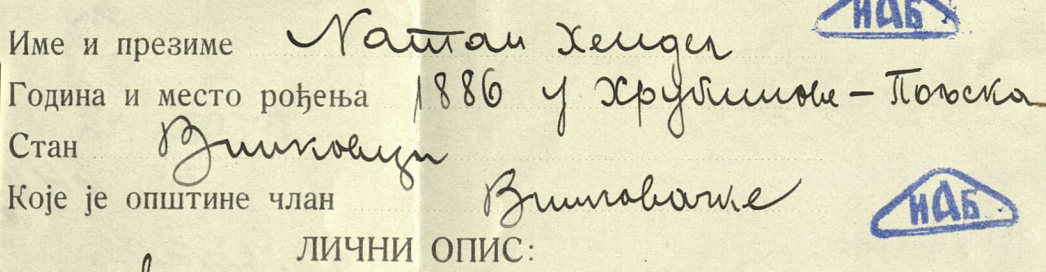 ИАБ
Име и презиме Натан Хендел
Година и место рођења 1886 у Хрубишове - Пољска
Стан Винковци
Које је општине члан Винковачке
ИАБ
ЛИЧНИ ОПИС: